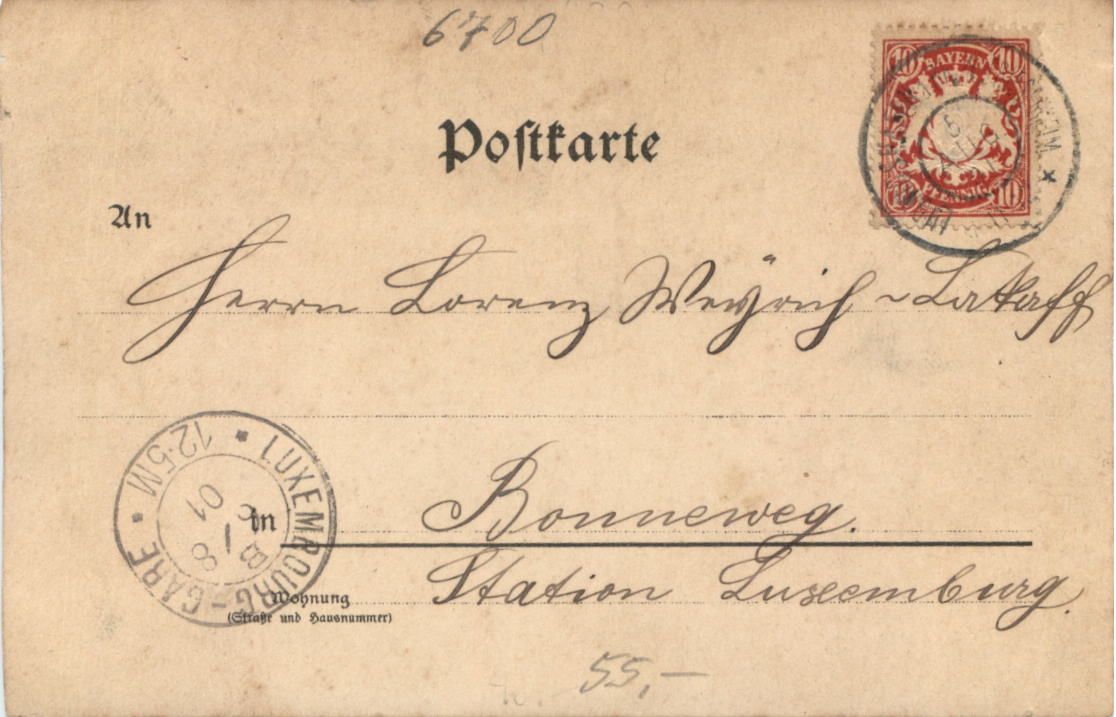 6700
10 BAYERN 10
10 PFENNIG 10
Postkarte
An
Herrn Lorenz Weÿrich - Lakaff
Bonneweg.
in
Station Luxemburg.
Wohnung
(Straße und Hausnummer)
LUXEMBOURG-GARE * 12-5M *
8 8
01
55,-